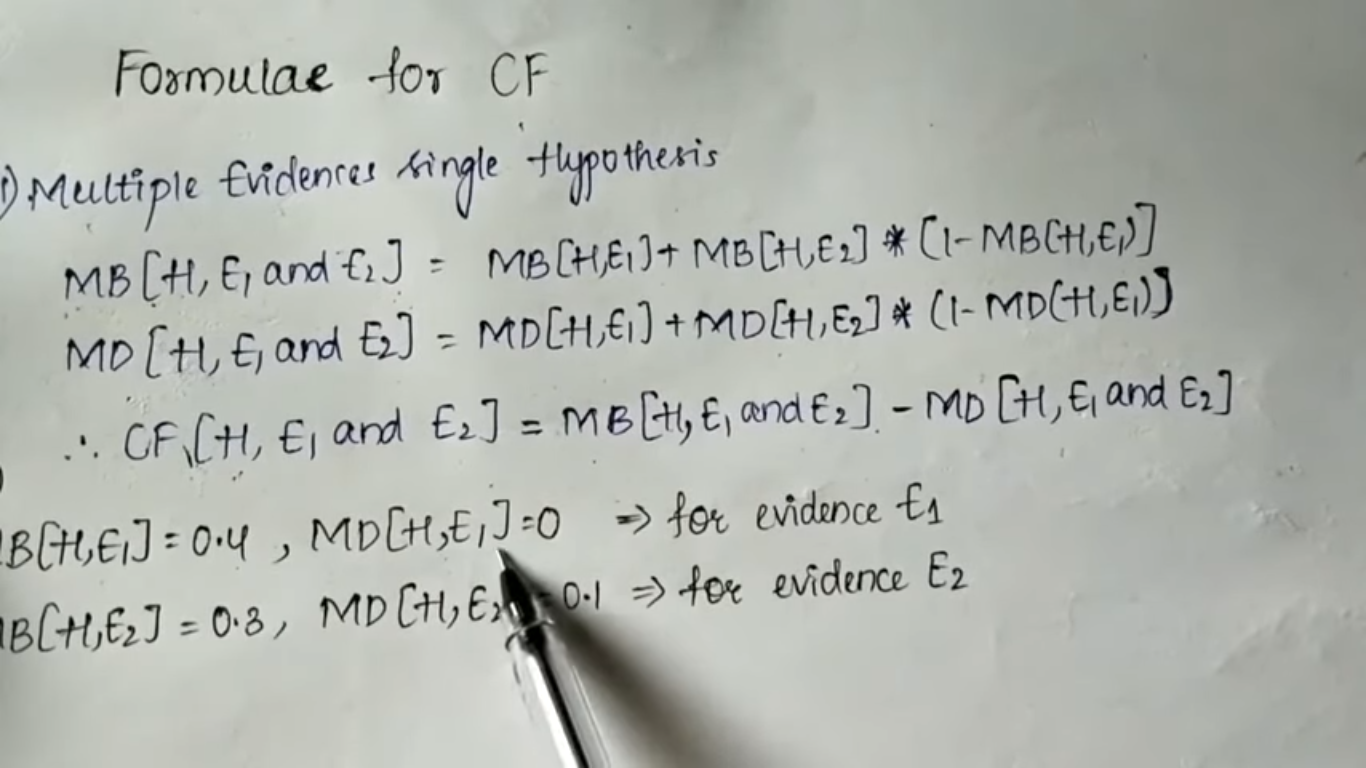 Formulae for CF
1) Multiple Evidences single Hypothesis
MB[H, E1 and E2] = MB[H,E1] + MB[H,E2] * (1- MB(H,E1)]
MD[H, E1 and E2] = MD[H,E1] + MD[H,E2] * (1- MD(H,E1)]
∴ CF[H, E1 and E2] = MB[H, E1 and E2] - MD[H, E1 and E2]
B[H,E1] = 0.4 , MD[H,E1] = 0 ⇒ for evidence E1
B[H,E2] = 0.3, MD[H,E2 = 0.1 ⇒ for evidence E2